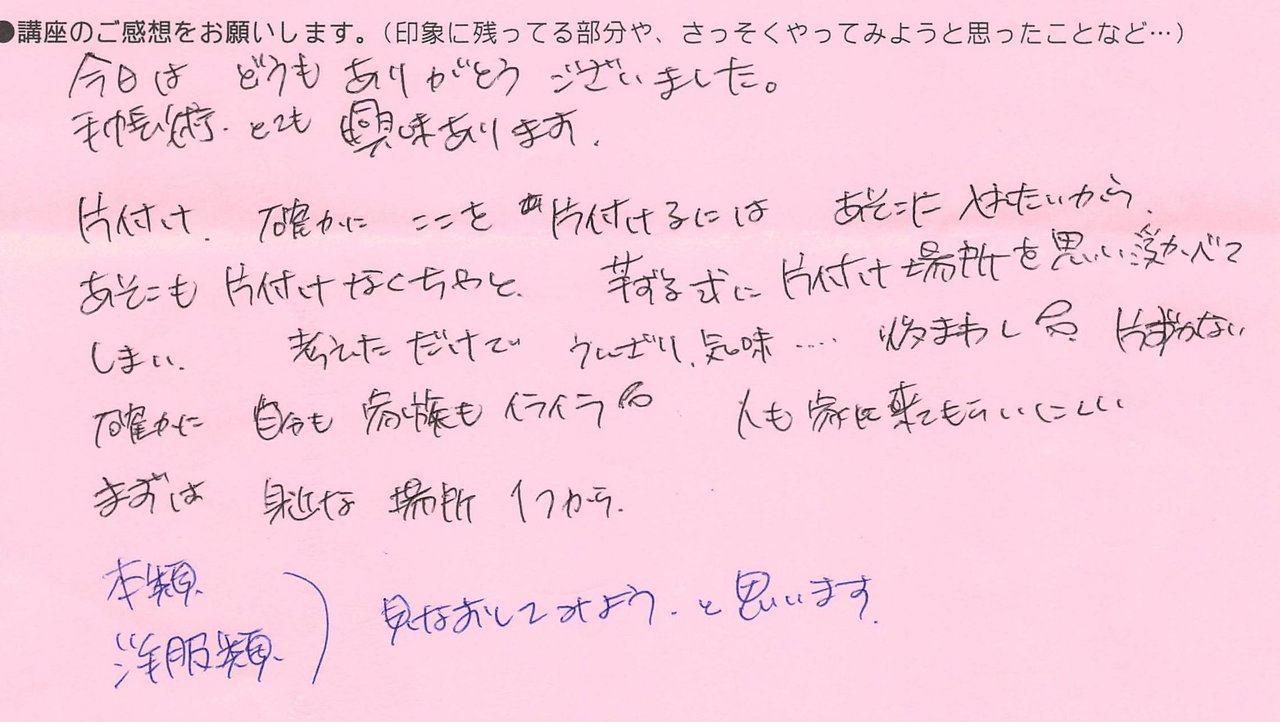 ●講座のご感想をお願いします。（印象に残ってる部分や、さっそくやってみようと思ったことなど…）
今日は どうも ありがとう ございました。
手帳術、とても 興味あります。
片付け、 確かに ここを 片付けるには あそこに
あそこも 片付けなくちゃと、 芋ずる式に 片付け場所を思い浮かべて
しまい、 考えた だけで うんざり、気味…… まわし 片ずかない
確かに 自分も 家族も イライラ 人も 家に 来てもらいにくい
まずは 身近な 場所 1つから、
本類、
洋服類、
見なおしてみよう、と思います。